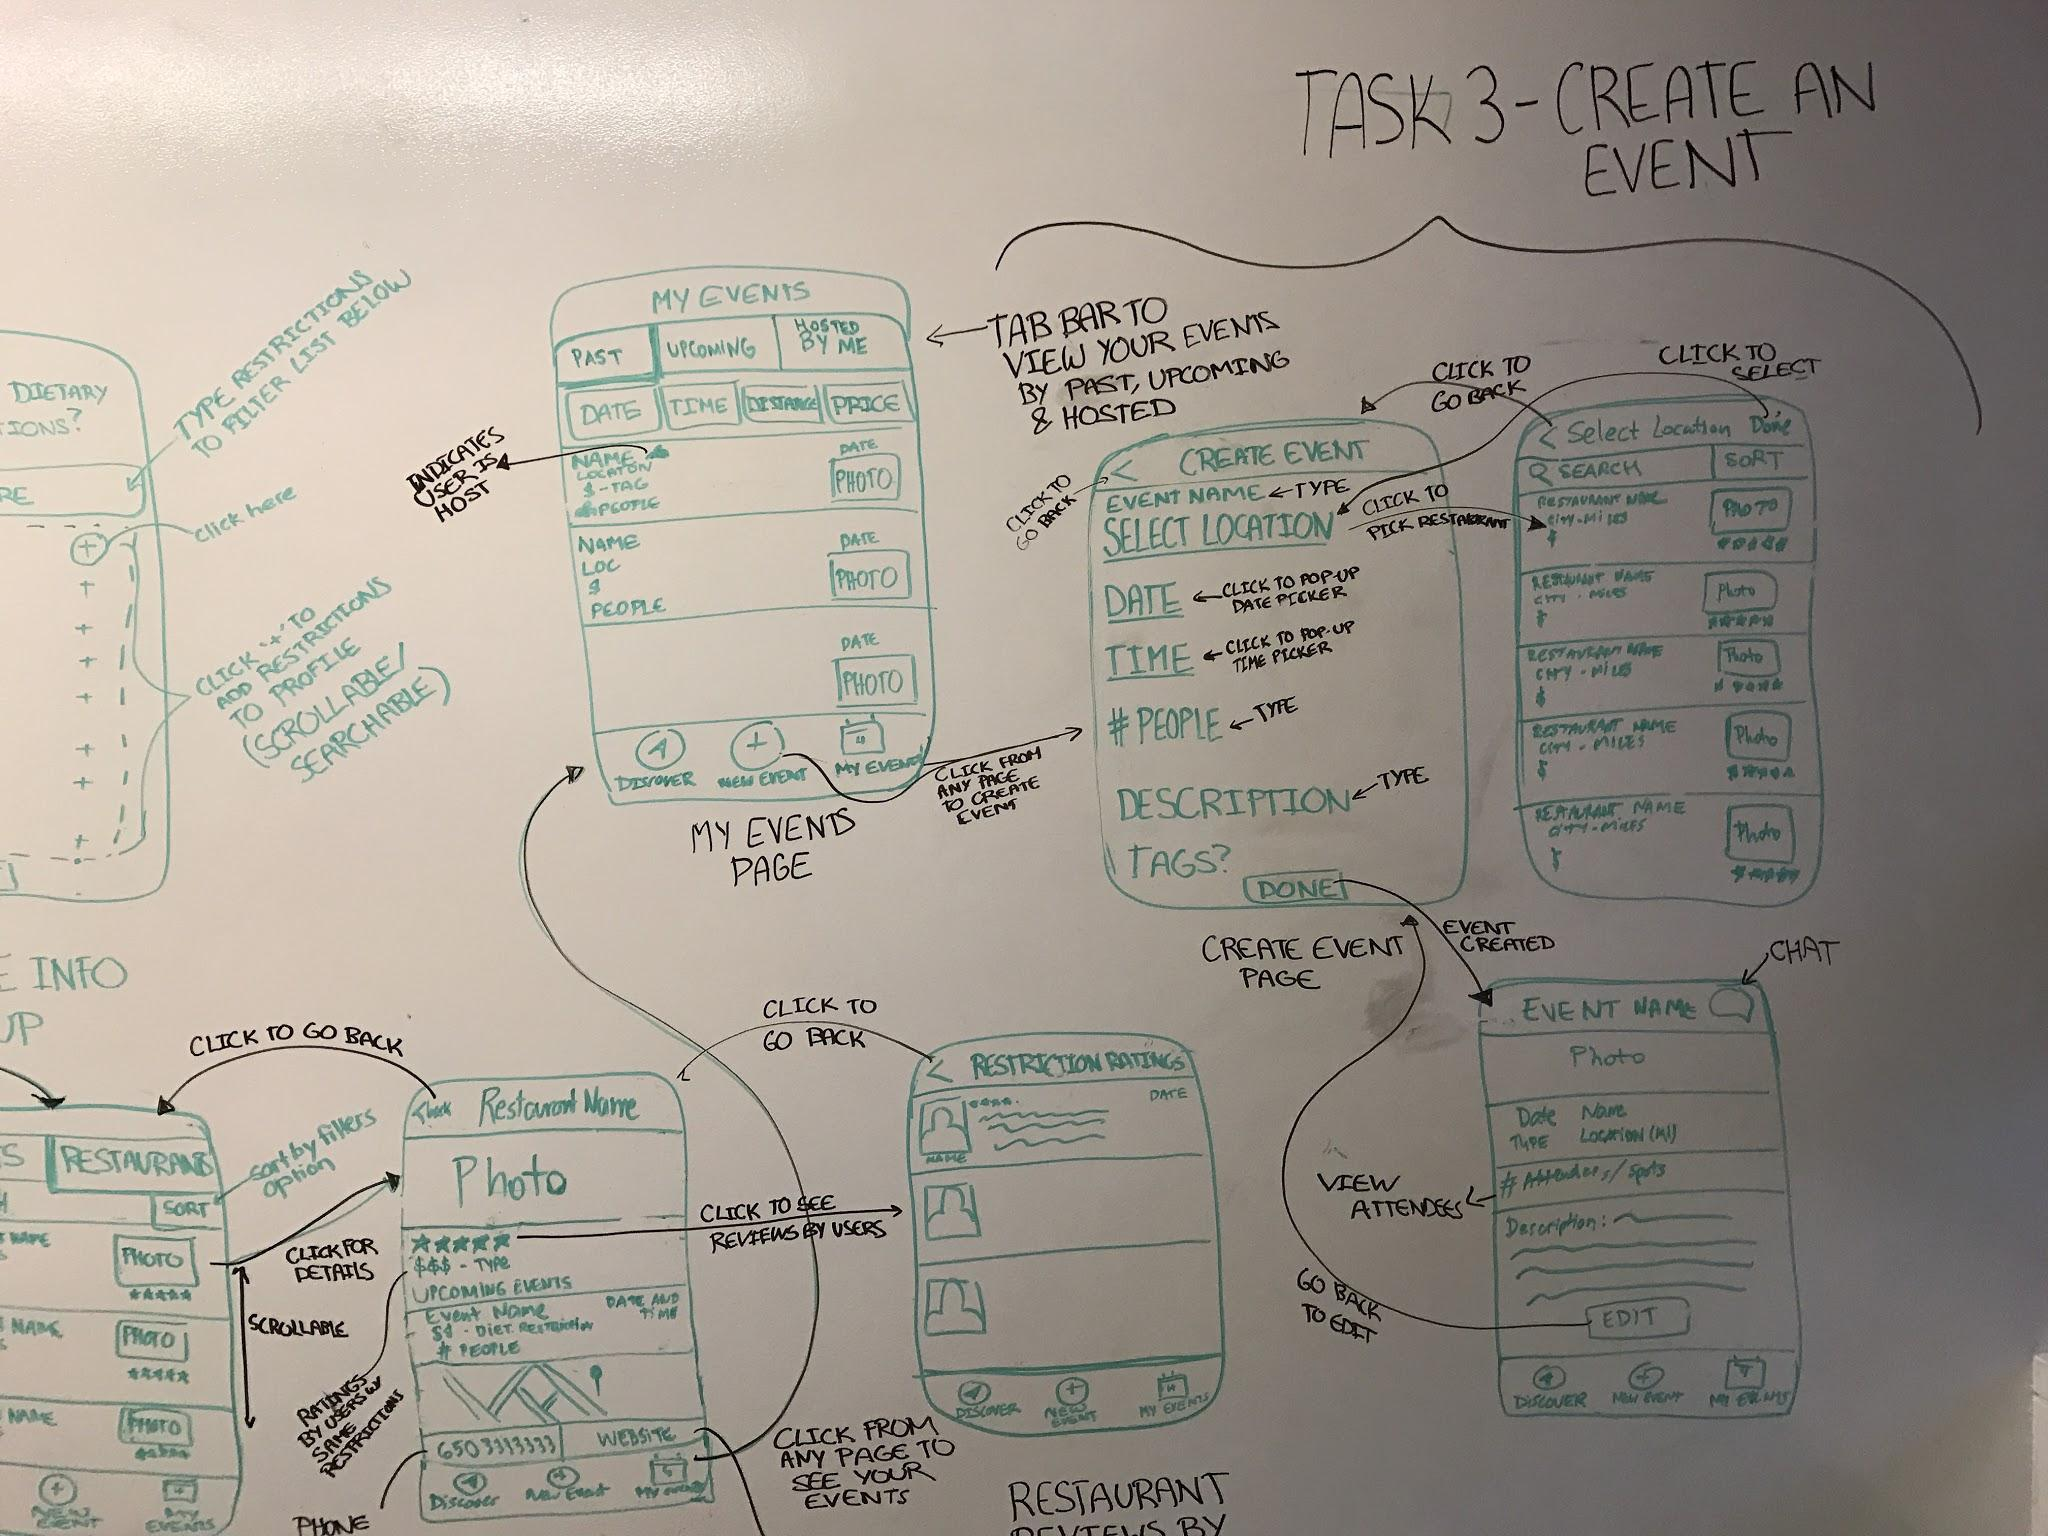 TASK 3 - CREATE AN
EVENT
DIETARY
IONS?
RE
TYPE RESTRICTIONS
TO FILTER LIST BELOW
click here
CLICK '+' TO
ADD RESTRICTIONS
TO PROFILE
(SCROLLABLE/
SEARCHABLE)
MY EVENTS
PAST
UPCOMING
HOSTED
BY ME
DATE
TIME
DISTANCE
PRICE
NAME
LOCATON
$-TAG
PEOPLE
DATE
PHOTO
NAME
LOC
$
PEOPLE
DATE
PHOTO
DATE
PHOTO
DISCOVER
NEW EVENT
MY EVENTS
MY EVENTS
PAGE
INDICATES
USER IS
HOST
TAB BAR TO
VIEW YOUR EVENTS
BY PAST, UPCOMING
& HOSTED
CLICK FROM
ANY PAGE
TO CREATE
EVENT
CLICK TO
GO BACK
< CREATE EVENT
EVENT NAME ← TYPE
SELECT LOCATION
CLICK TO
PICK RESTAURANT
DATE ← CLICK TO POP-UP
DATE PICKER
TIME ← CLICK TO POP-UP
TIME PICKER
# PEOPLE ← TYPE
DESCRIPTION ← TYPE
TAGS?
DONE
CREATE EVENT
PAGE
CLICK TO
GO BACK
CLICK TO
SELECT
< Select Location Done
SEARCH
SORT
RESTAURANT NAME
CITY-MILES
$
PHOTO
RESTAURANT NAME
CITY - MILES
$
Photo
RESTAURANT NAME
CITY - MILES
$
Photo
RESTAURANT NAME
CITY - MILES
$
Photo
RESTAURANT NAME
CITY-MILES
$
Photo
EVENT
CREATED
CHAT
EVENT NAME
Photo
Date Name
TYPE LOCATION (MI)
# Attendees/Spots
Description:
EDIT
DISCOVER
NEW EVENT
MY EVENTS
VIEW
ATTENDEES
GO BACK
TO EDIT
E INFO
UP
CLICK TO GO BACK
S
RESTAURANTS
SORT
sort by filters
option
NAME
PHOTO
NAME
PHOTO
NAME
PHOTO
NEW
EVENT
MY
EVENTS
CLICK FOR
DETAILS
SCROLLABLE
<back Restaurant Name
Photo
$$$ - TYPE
UPCOMING EVENTS
Event Name
DATE AND
TIME
$$ - DIET. RESTRICTION
# PEOPLE
6503313333
WEBSITE
Discover
New Event
My events
RATINGS
BY USERS W/
SAME
RESTRICTIONS
PHONE
CLICK TO SEE
REVIEWS BY USERS
CLICK TO
GO BACK
< RESTRICTION RATINGS
DATE
NAME
DISCOVER
NEW
EVENT
MY EVENTS
CLICK FROM
ANY PAGE TO
SEE YOUR
EVENTS
RESTAURANT
REVIEWS BY